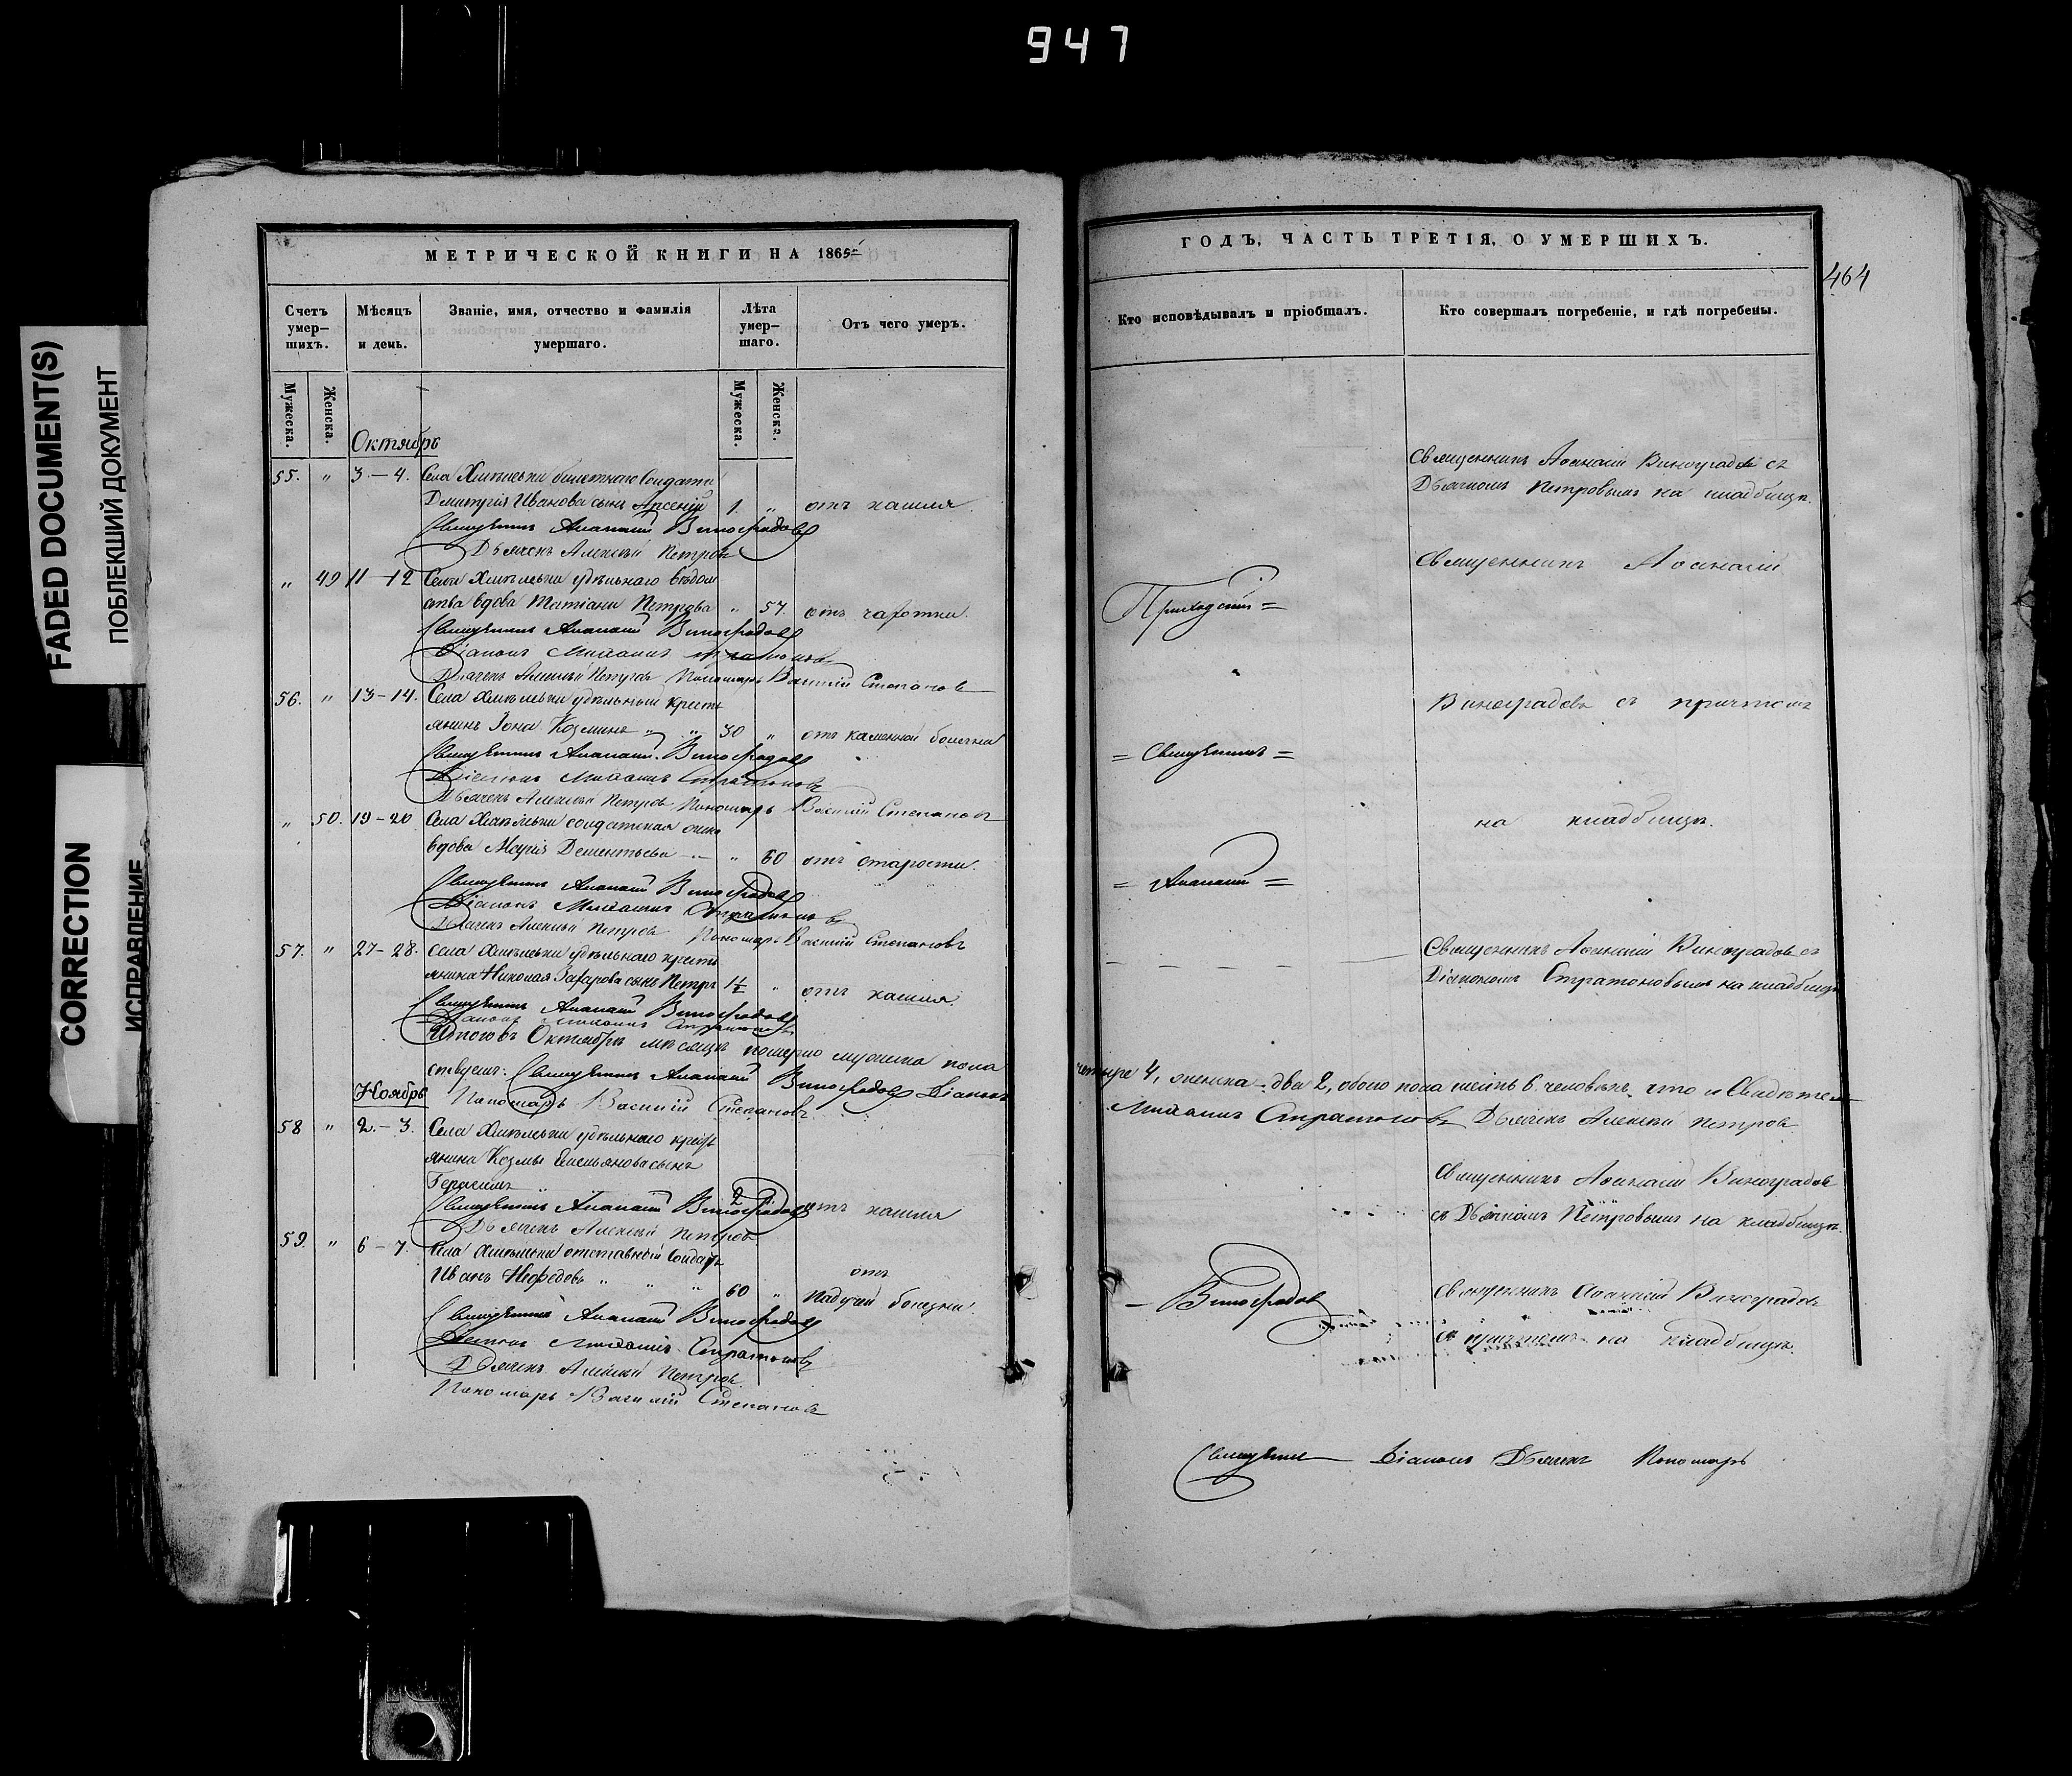 947
FADED DOCUMENT(S)
ПОБЛЕКШИЙ ДОКУМЕНТ
CORRECTION
ИСПРАВЛЕНИЕ
МЕТРИЧЕСКОЙ КНИГИ НА 1865
Счетъ умер-шихъ.
Мѣсяцъ и день.
Званіе, имя, отчество и фамилія умершаго.
Лѣта умер-шаго.
Отъ чего умеръ.
Мужеска.
Женска.
Мужеска.
Женска.
Октябрь
55. " 3–4. Села Хмѣлевки билетнаго солдата
Димитрія Иванова сынъ Арсеній 1. " отъ кашля
Священникъ Аѳанасій Виноградовъ
Дьячекъ Алексѣй Петровъ
" 49 11–12 Села Хмѣлевки удѣльнаго вѣдом
ства вдова Татіана Петрова " 57. отъ чахотки.
Священникъ Аѳанасій Виноградовъ
Діаконъ Михаилъ Стратоновъ
Дьячекъ Алексѣй Петровъ Пономарь Василій Степановъ
56. " 13–14. Села Хмѣлевки удѣльный кресть
янинъ Іона Козминъ " " 30 " отъ каменной болѣзни
Священникъ Аѳанасій Виноградовъ
Діаконъ Михаилъ Стратоновъ
Дьячекъ Алексѣй Петровъ Пономарь Василій Степановъ
" 50. 19–20 Села Хмѣлевки солдатская жена
вдова Марія Дементьева " 60 отъ старости.
Священникъ Аѳанасій Виноградовъ
Діаконъ Михаилъ Стратоновъ
Дьячекъ Алексѣй Петровъ Пономарь Василій Степановъ
57. " 27–28. Села Хмѣлевки удѣльнаго кресть
янина Николая Захарова сынъ Петръ 1½ " отъ кашля
Священникъ Аѳанасій Виноградовъ
Діаконъ Михаилъ Стратоновъ
Итого въ Октябрѣ мѣсяцѣ померло мужеска пола
ствуемъ: Священникъ Аѳанасій Виноградовъ Діаконъ
Ноябрь Пономарь Василій Степановъ
58 " 2.–3. Села Хмѣлевки удѣльнаго крест
янина Козмы Емельянова сынъ
Герасимъ 2
Священникъ Аѳанасій Виноградовъ отъ кашля
Дьячекъ Алексѣй Петровъ
59. " 6–7. Села Хмѣлевки отставный солдатъ
Иванъ Нефедовъ " " " 60 " отъ падучей болѣзни.
Священникъ Аѳанасій Виноградовъ
Діаконъ Михаилъ Стратоновъ
Дьячекъ Алексѣй Петровъ
Пономарь Василій Степановъ
ГОДЪ, ЧАСТЬ ТРЕТІЯ, О УМЕРШИХЪ.
464
Кто исповѣдывалъ и пріобщалъ.
Кто совершалъ погребеніе, и гдѣ погребены.
Священникъ Аѳанасій Виноградовъ съ
Дьячкомъ Петровымъ на кладбищѣ.
Священникъ Аѳанасій
Приходскій =
Виноградовъ съ причтомъ
= Священникъ =
на кладбищѣ.
= Аѳанасій =
Священникъ Аѳанасій Виноградовъ съ
Діакономъ Стратоновымъ на кладбищѣ
четыре 4, женска двѣ 2, обоего пола шесть 6. человѣкъ, что и свидѣтель
Михаилъ Стратоновъ Дьячекъ Алексѣй Петровъ
Священникъ Аѳанасій Виноградовъ
съ Дьячкомъ Петровымъ на кладбищѣ.
– Виноградовъ
Священникъ Аѳанасій Виноградовъ
съ причтомъ на кладбищѣ.
Священникъ Діаконъ Дьячекъ Пономарь